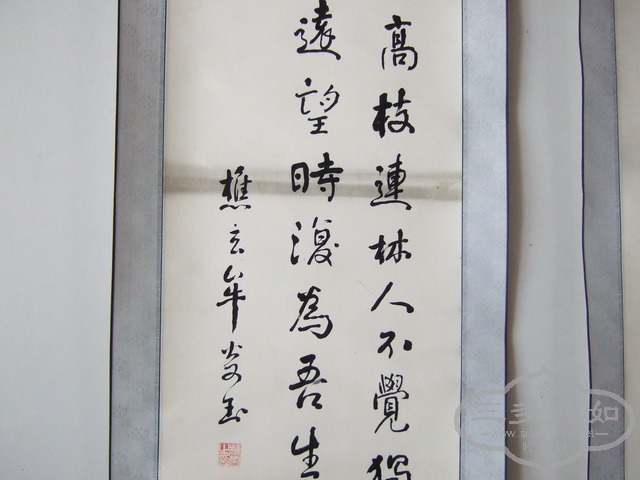 高枝連林人不覺獨
遠望時復為吾生
樵玄牟